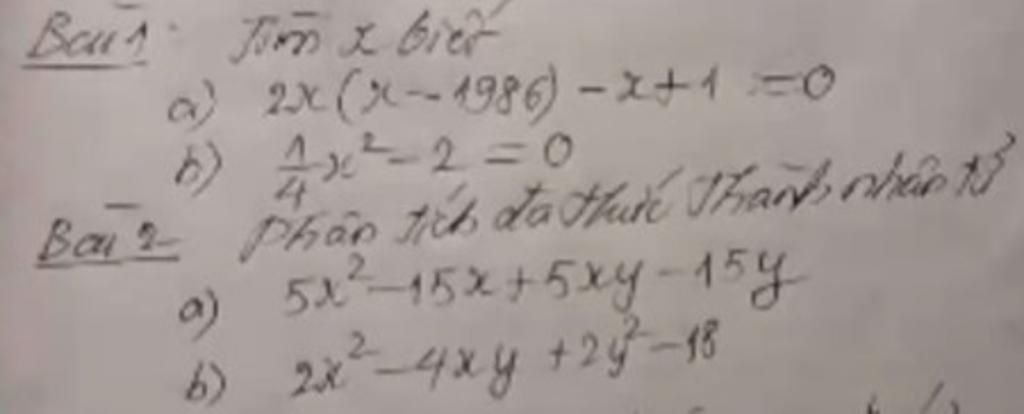 Bài 1: Tìm x biết
a) 2x(x-1986)-x+1=0
b) 1/4x²-2=0
Bài 2 Phân tích đa thức thành nhân tử
a) 5x²-15x+5xy-15y
b) 2x²-4xy+2y²-18